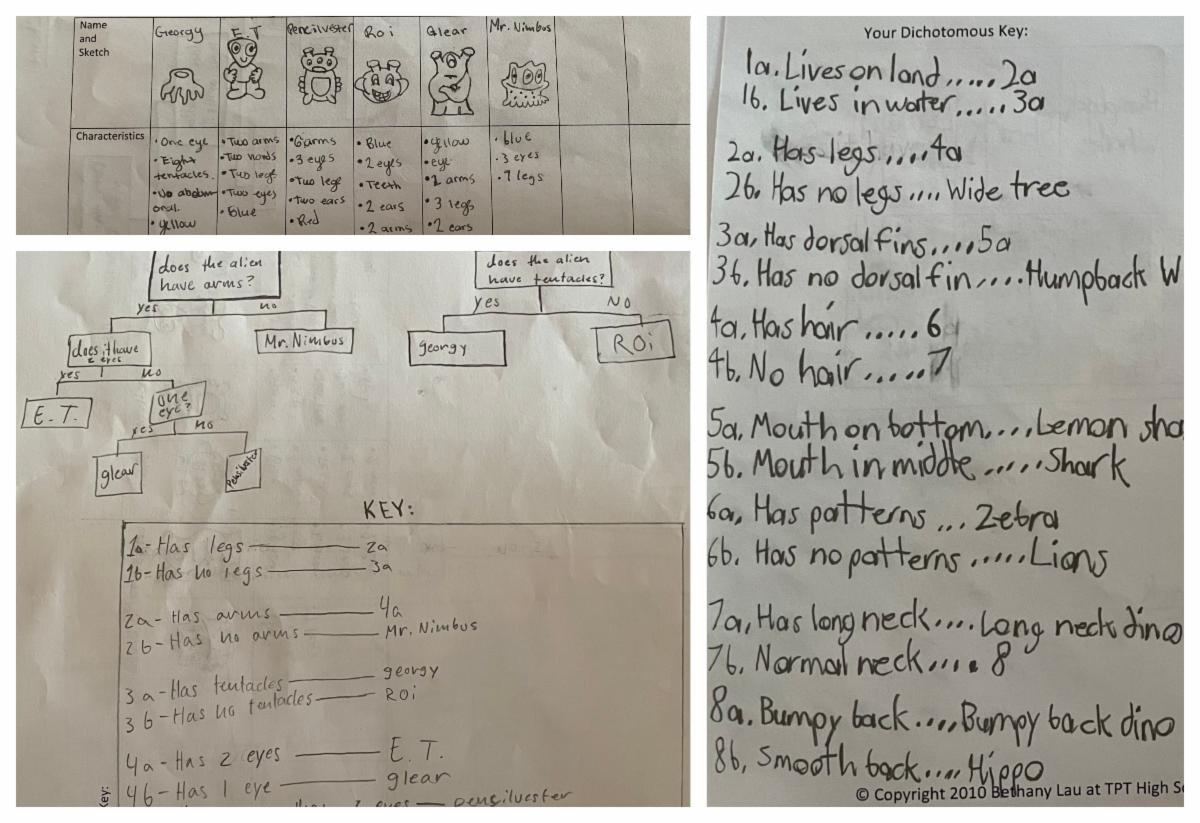 Name and Sketch
Georgy
E.T
Pencilvester
Roi
Glear
Mr. Nimbus
Characteristics
• One eye
• Eight tentacles.
• No abdomonal.
• yellow
• Two arms
• Two hands
• Two legs
• Two eyes
• blue
• 6 arms
• 3 eyes
• Two legs
• two ears
• Red
• Blue
• 2 eyes
• Teeth
• 2 ears
• 2 arms
• yellow
• eye
arms
• 3 legs
• 2 ears
• blue
• 3 eyes
• 7 legs
does the alien
have arms?
yes
no
does it have
2 eyes
Mr. Nimbus
yes
no
E.T.
one
eye?
yes
no
glear
does the alien
have tentacles?
yes
NO
georgy
ROi
KEY:
1a- Has legs 2a
1b- Has no legs 3a
2a- Has arms 4a
2b- Has no arms Mr. Nimbus
3a- Has tentacles georgy
3b- Has no tentacles ROi
4a- Has 2 eyes E.T.
4b- Has 1 eye glear
eyes — pensilvester
Key:
Your Dichotomous Key:
1a. Lives on land ..... 2a
1b. Lives in water ..... 3a
2a. Has legs .... 4a
2b. Has no legs .... Wide tree
3a, Has dorsal fins .... 5a
3b. Has no dorsal fin .... Humpback W
4a, Has hair ..... 6
4b, No hair ..... 7
5a, Mouth on bottom .... Lemon sha
5b. Mouth in middle ..... Shark
6a, Has patterns ... Zebra
6b. Has no patterns ..... Lions
7a, Has long neck .... Long neck dino
7b. Normal neck .... 8
8a. Bumpy back .... Bumpy back dino
8b, Smooth back .... Hippo
© Copyright 2010 Bethany Lau at TPT High S